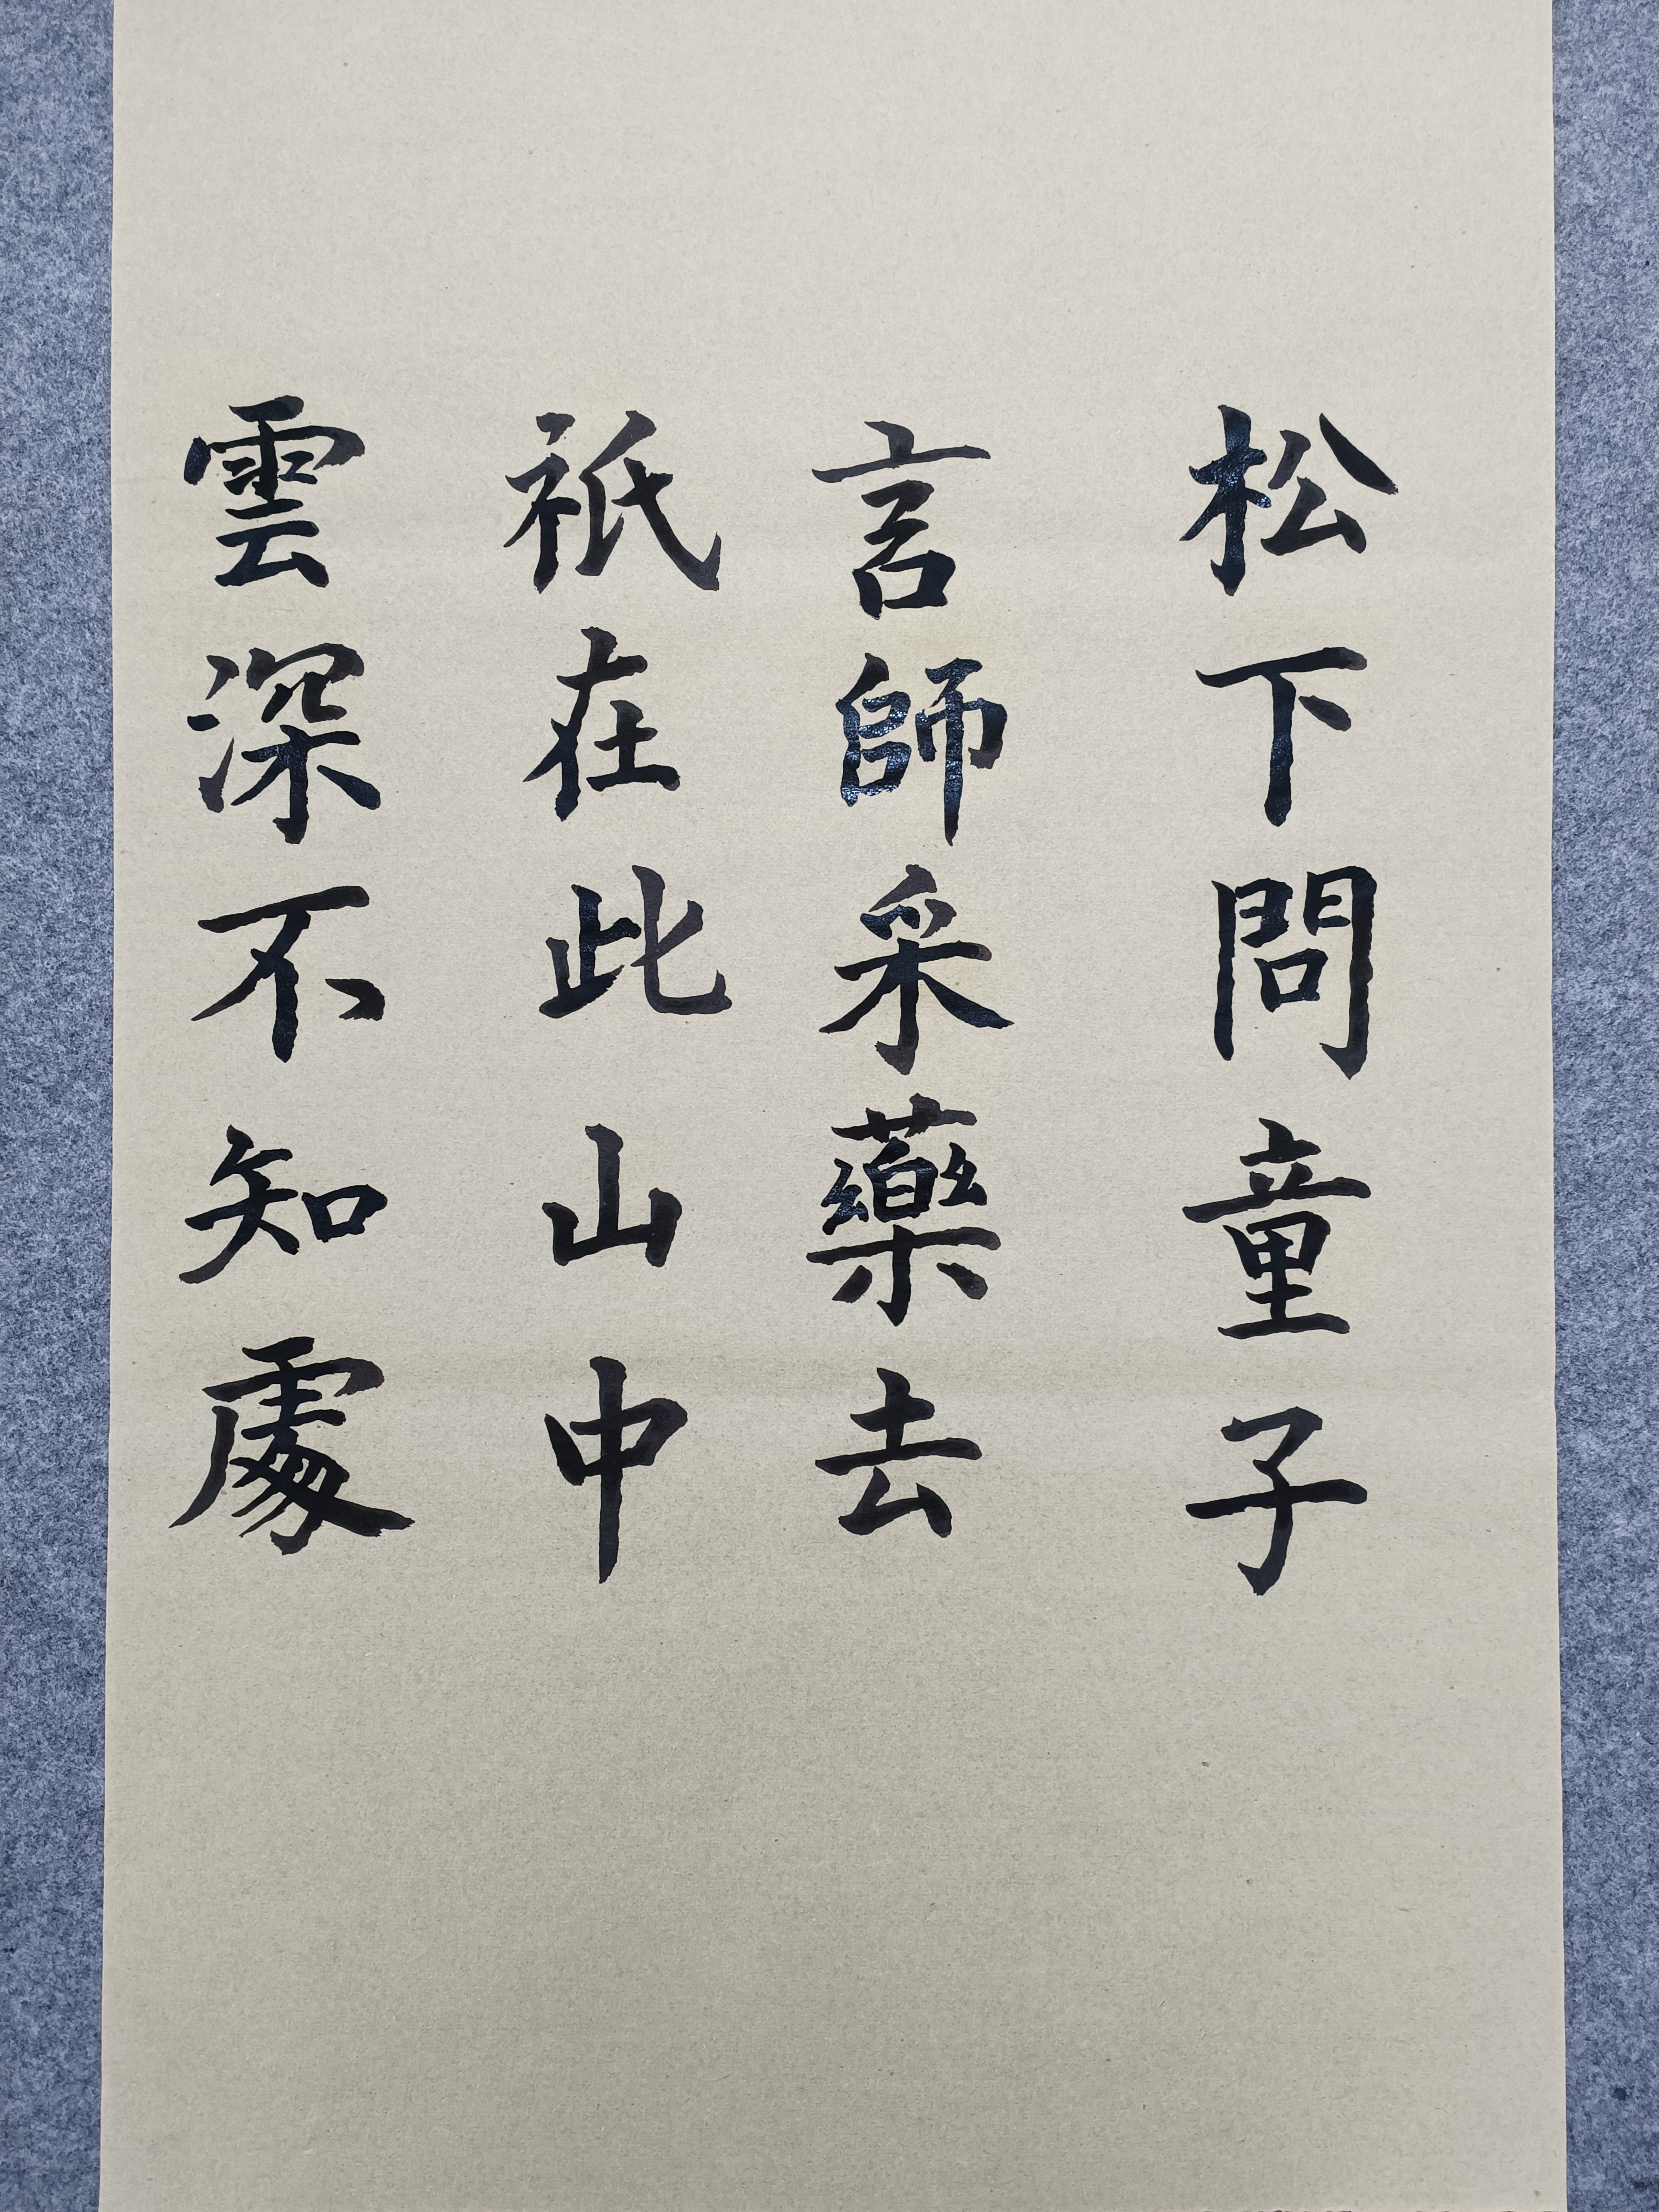 松下問童子
言師采藥去
祇在此山中
雲深不知處